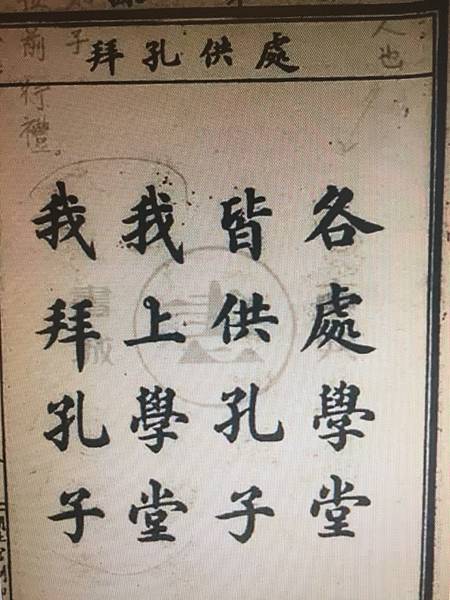 人也
子
前行禮。
處供孔拜
各處學堂
皆供孔子
我上學堂
我拜孔子